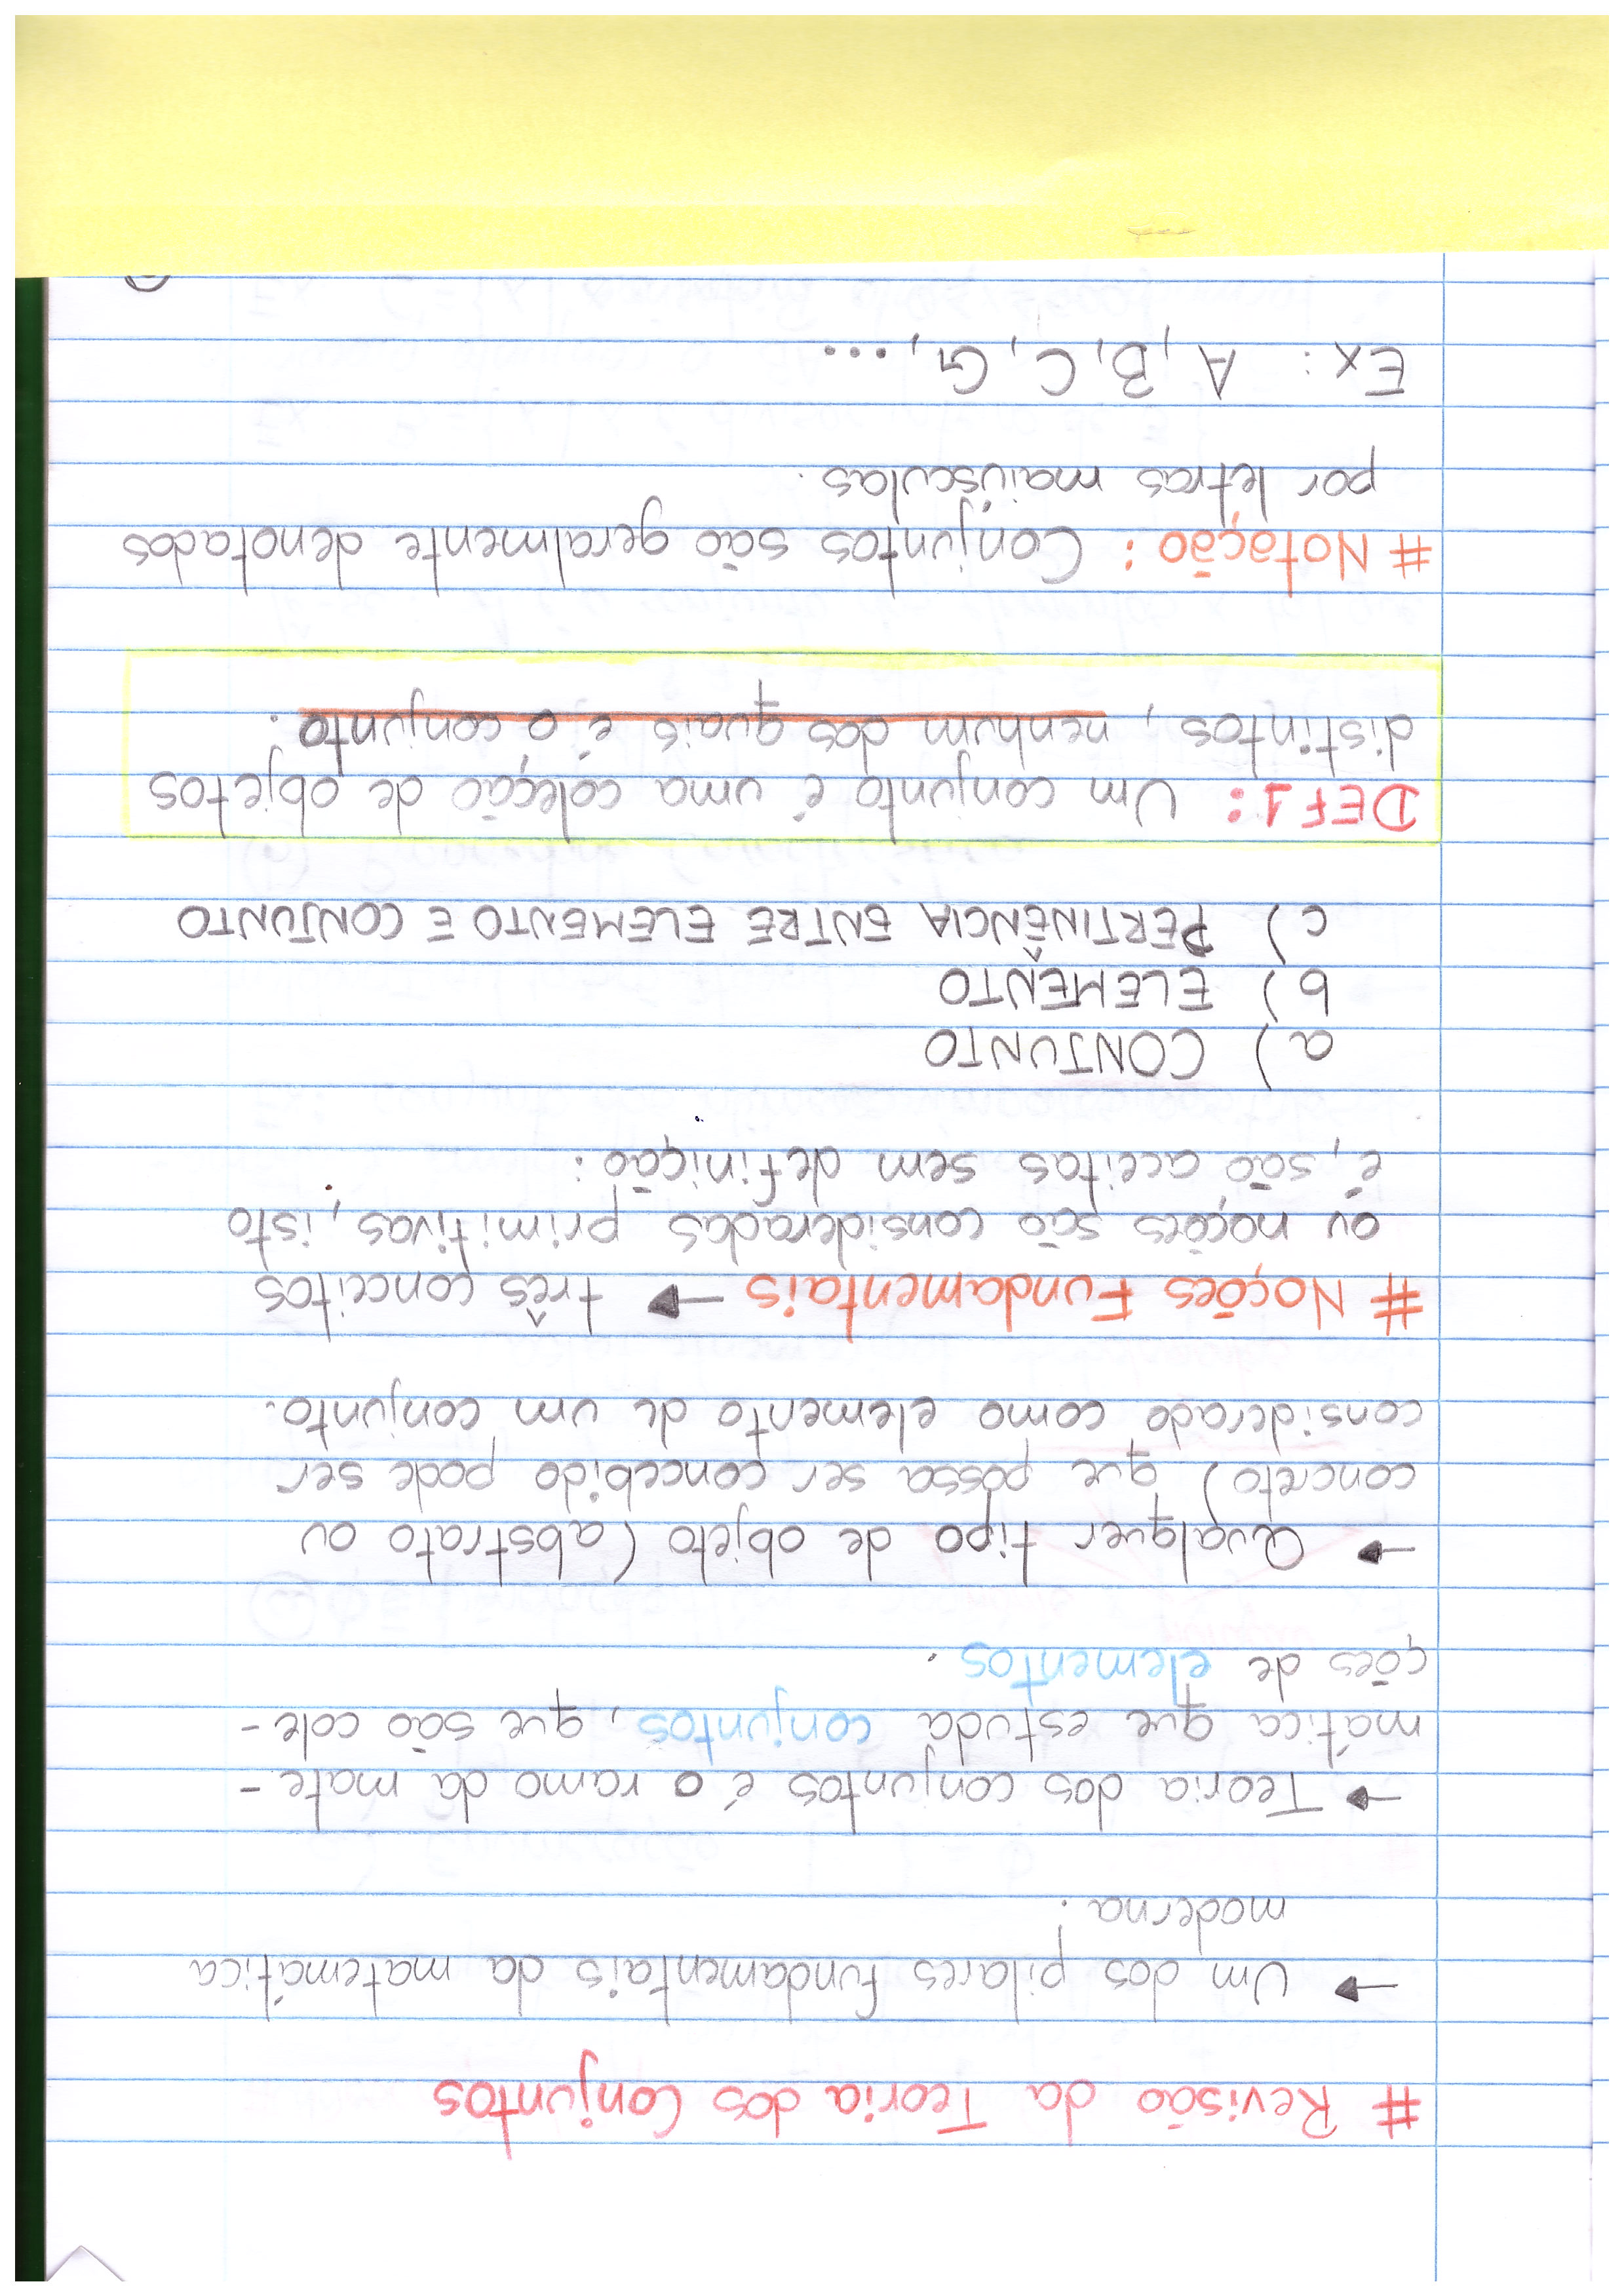 # Revisão da Teoria dos Conjuntos
→ Um dos pilares fundamentais da matemática
moderna!
→ Teoria dos conjuntos é o ramo da mate-
mática que estuda conjuntos, que são cole-
ções de elementos.
→ Qualquer tipo de objeto (abstrato ou
concreto) que possa ser concebido pode ser
considerado como elemento de um conjunto.
# Noções Fundamentais → três conceitos
ou noções são consideradas primitivas, isto
é, são aceitas sem definição:
a) CONJUNTO
b) ELEMENTO
c) PERTINÊNCIA ENTRE ELEMENTO E CONJUNTO
DEF 1: Um conjunto é uma coleção de objetos
distintos, nenhum dos quais é o conjunto.
# Notação: Conjuntos são geralmente denotados
por letras maiúsculas.
Ex: A, B, C, G, ...